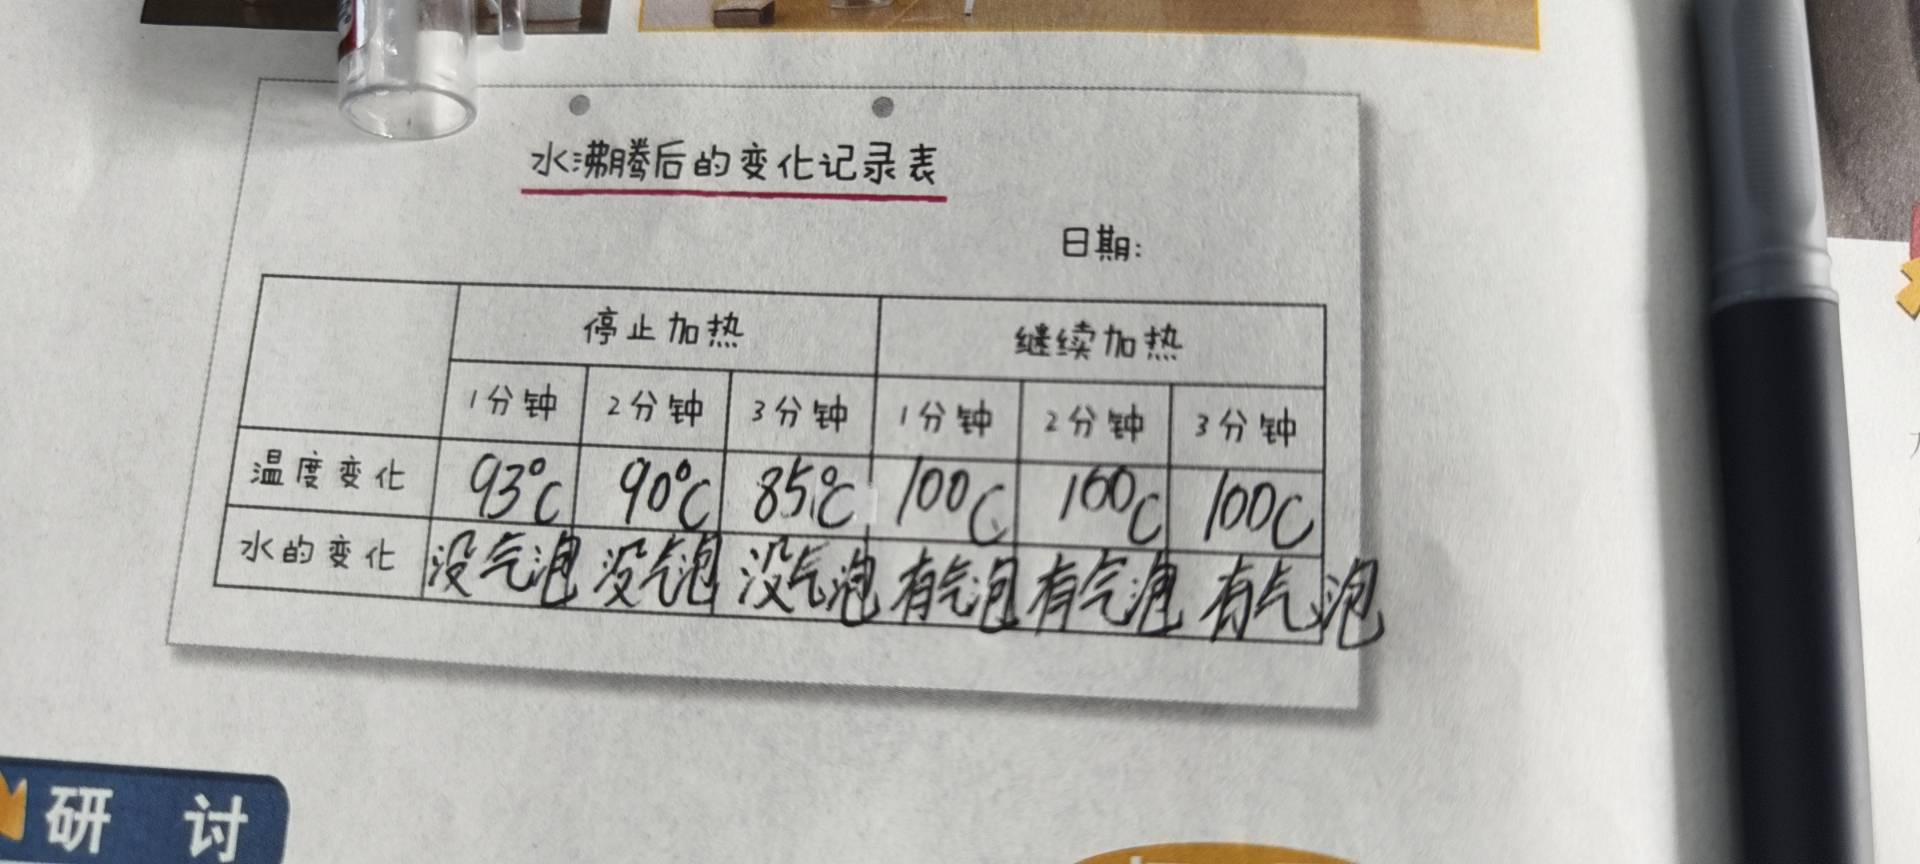 水沸腾后的变化记录表
日期:
停止加热 继续加热
1分钟 2分钟 3分钟 1分钟 2分钟 3分钟
温度变化 93°C 90°C 85°C 100C 100C 100C
水的变化 没气泡 没气泡 没气泡 有气泡 有气泡 有气泡
研讨